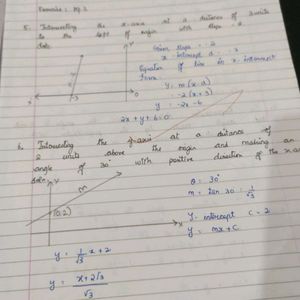 5. Intersecting the x-axis at a distance of 3 units
to the left of origin with slope - 2
Soln:
Given slope = -2
x intercept d = -3
Equation of line in x intercept
Form:
y = m(x-d)
= -2(x+3)
y = -2x-6
2x+y+6=0
Y
X
-3
O
6. Intersecting the y-axis at a distance of
2 units above the origin and making an
angle of 30° with positive direction of the x-axis
Soln:
Y
m
(0,2)
X
θ = 30°
m = tan 30 = 1/√3
Y-intercept c = 2
y = mx+c
y = 1/√3 x + 2
y = x+2√3/√3